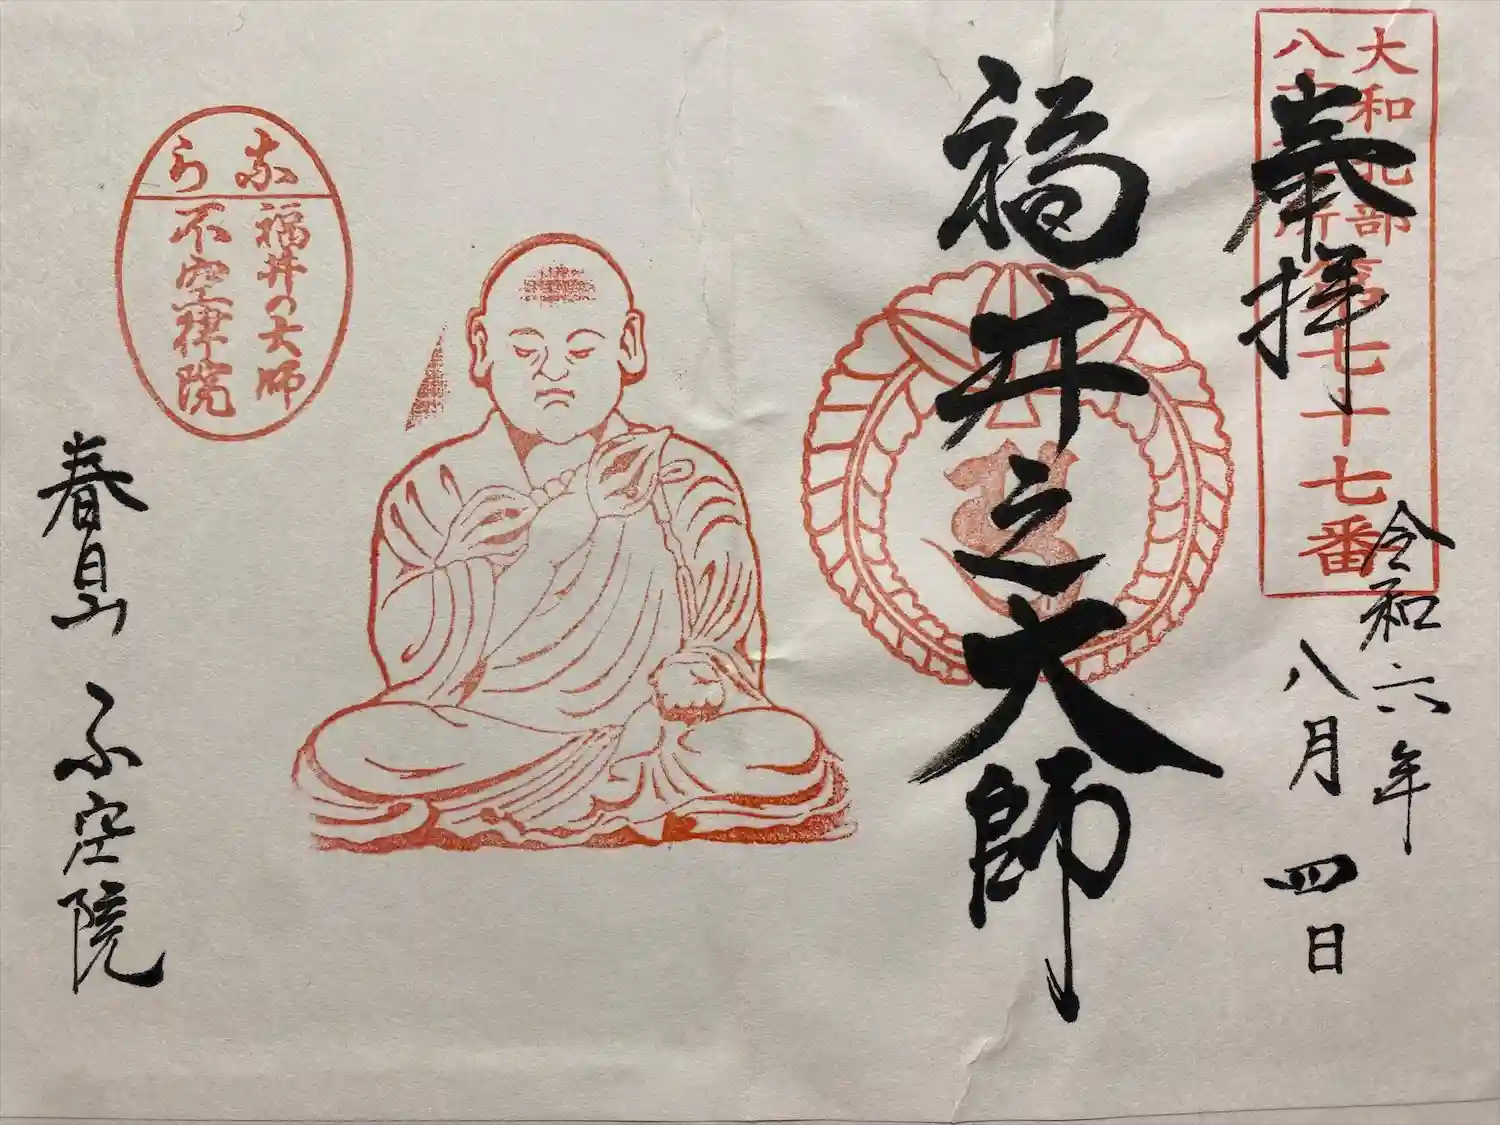 大和北部
八十八ヶ所第七十七番
奉拝
令和六年
八月四日
福井之大師
なら
福井の大師
不空律院
春日山 ふ空院